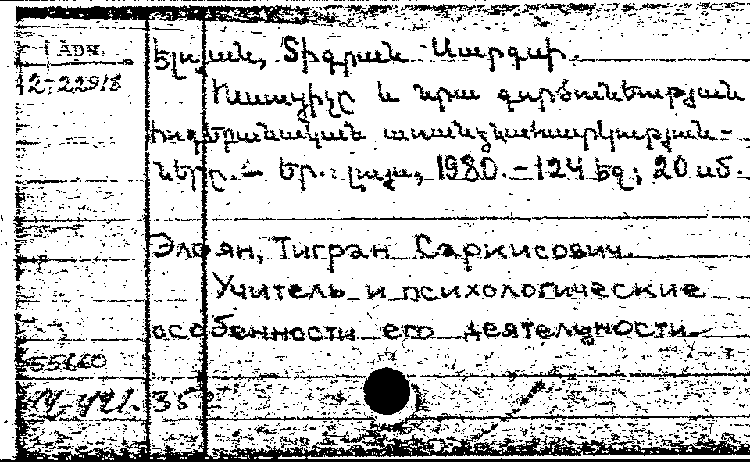 Էլոյան, Տիգրան Սարգսի.
Ուսուցիչը և նրա գործունեության
հոգեբանական առանձնահատկություն-
ները. – Եր.: Լույս, 1980. – 124 էջ; 20 սմ.
Элоян, Тигран Саркисович.
Учитель и психологические
особенности его деятельности.